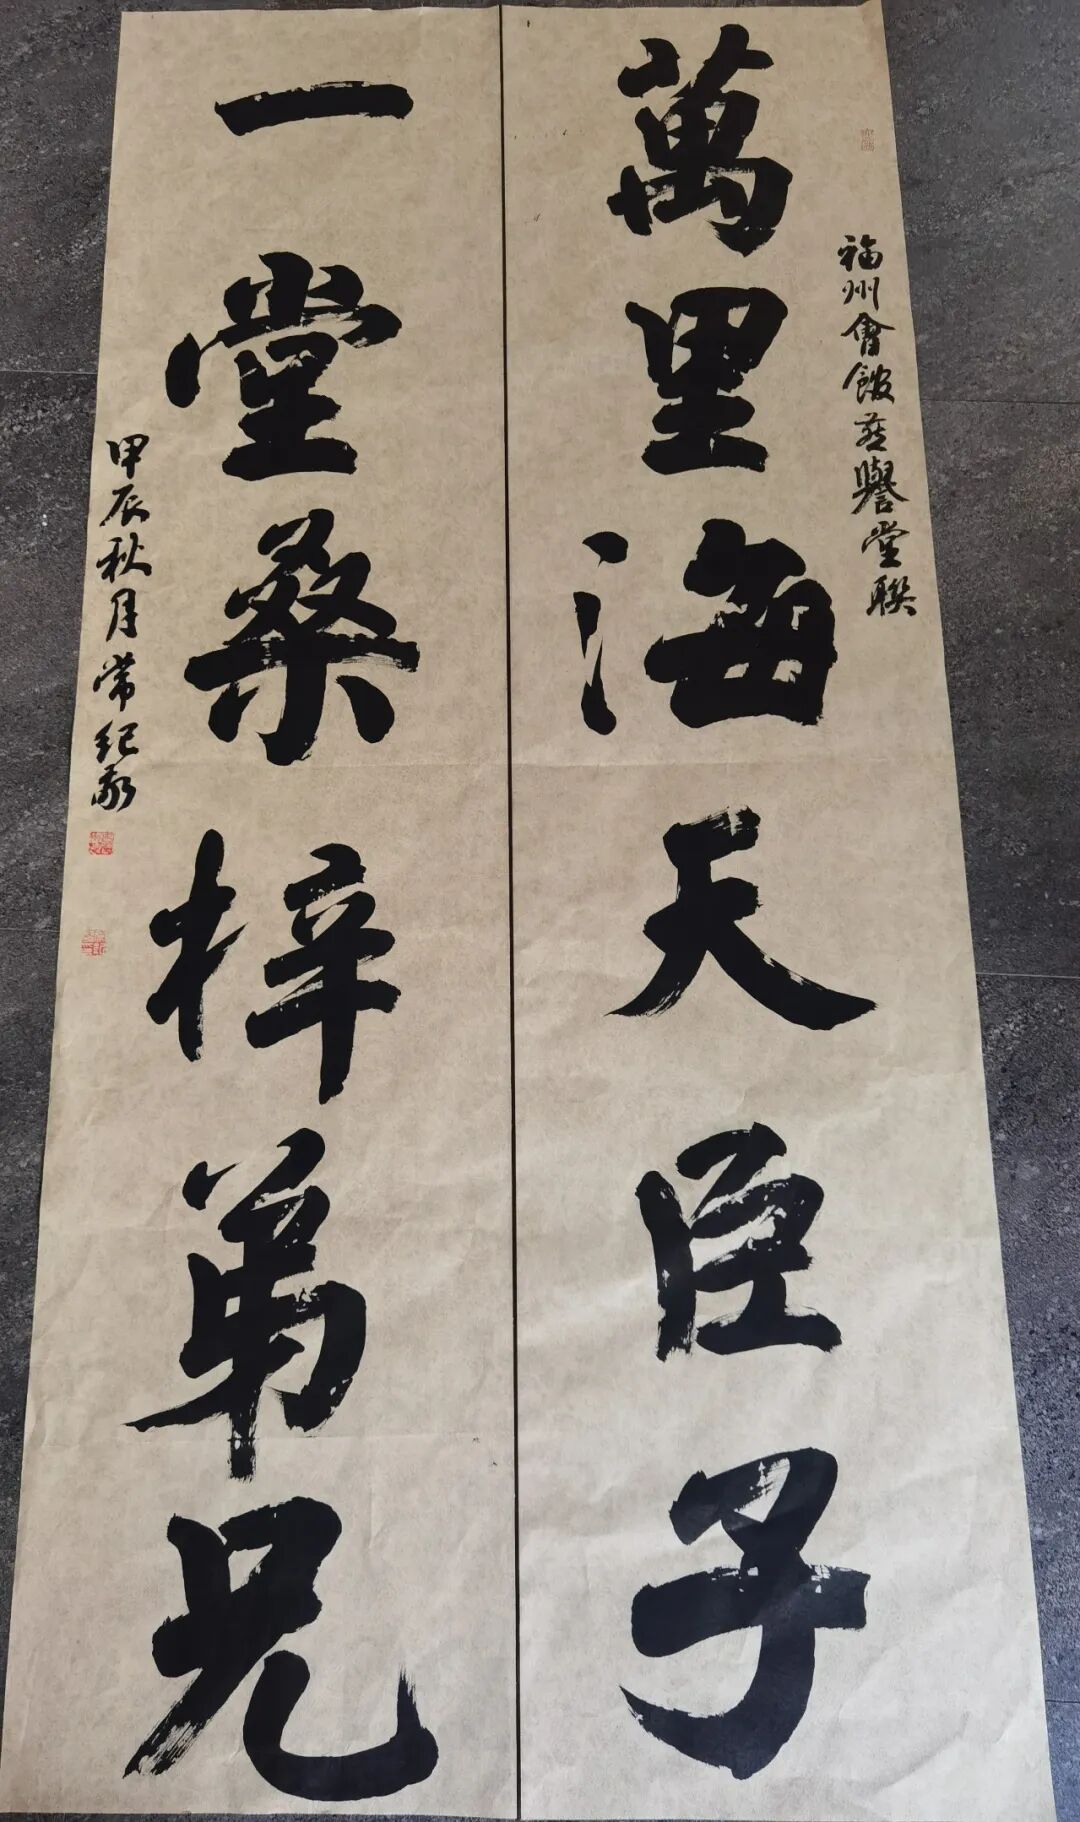 福州會館燕譽堂聯
萬里海天臣子
一堂桑梓弟兄
甲辰秋月常紀敬